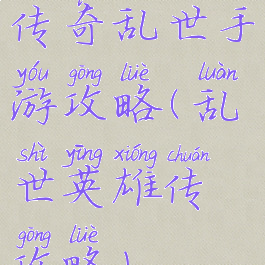 传奇乱世手
yóu gōng lüè luàn
游攻略(乱
shì yīng xióng chuán
世英雄传
gōng lüè
攻略)